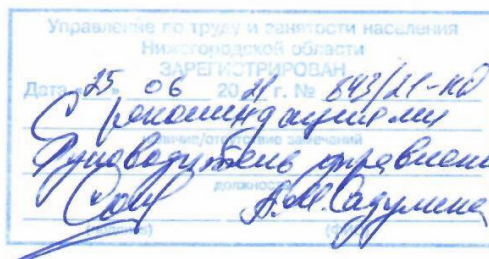 Управление по труду и занятости населения
Нижегородской области
ЗАРЕГИСТРИРОВАН
Дата «25» 06 2021 г. № 643/21-КД
С рекомендациями
наличие/отсутствие замечаний
Руководитель управления
должность
А.М. Садулина